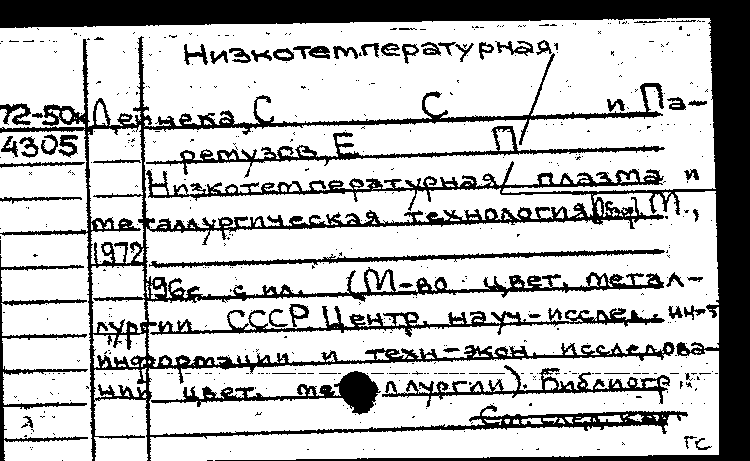 Низкотемпературная
72-50к Дейнека, С. С. и Па-
4305 ремузов, Е. П.
Низкотемпературная плазма и
металлургическая технология. [Обзор]. М.,
1972
96 с. с ил. (М-во цвет. метал-
лургии СССР. Центр. науч.-исслед. ин-т
информации и техн-экон. исследова-
ний цвет. металлургии). Библиогр.
См. след. карт
ГС